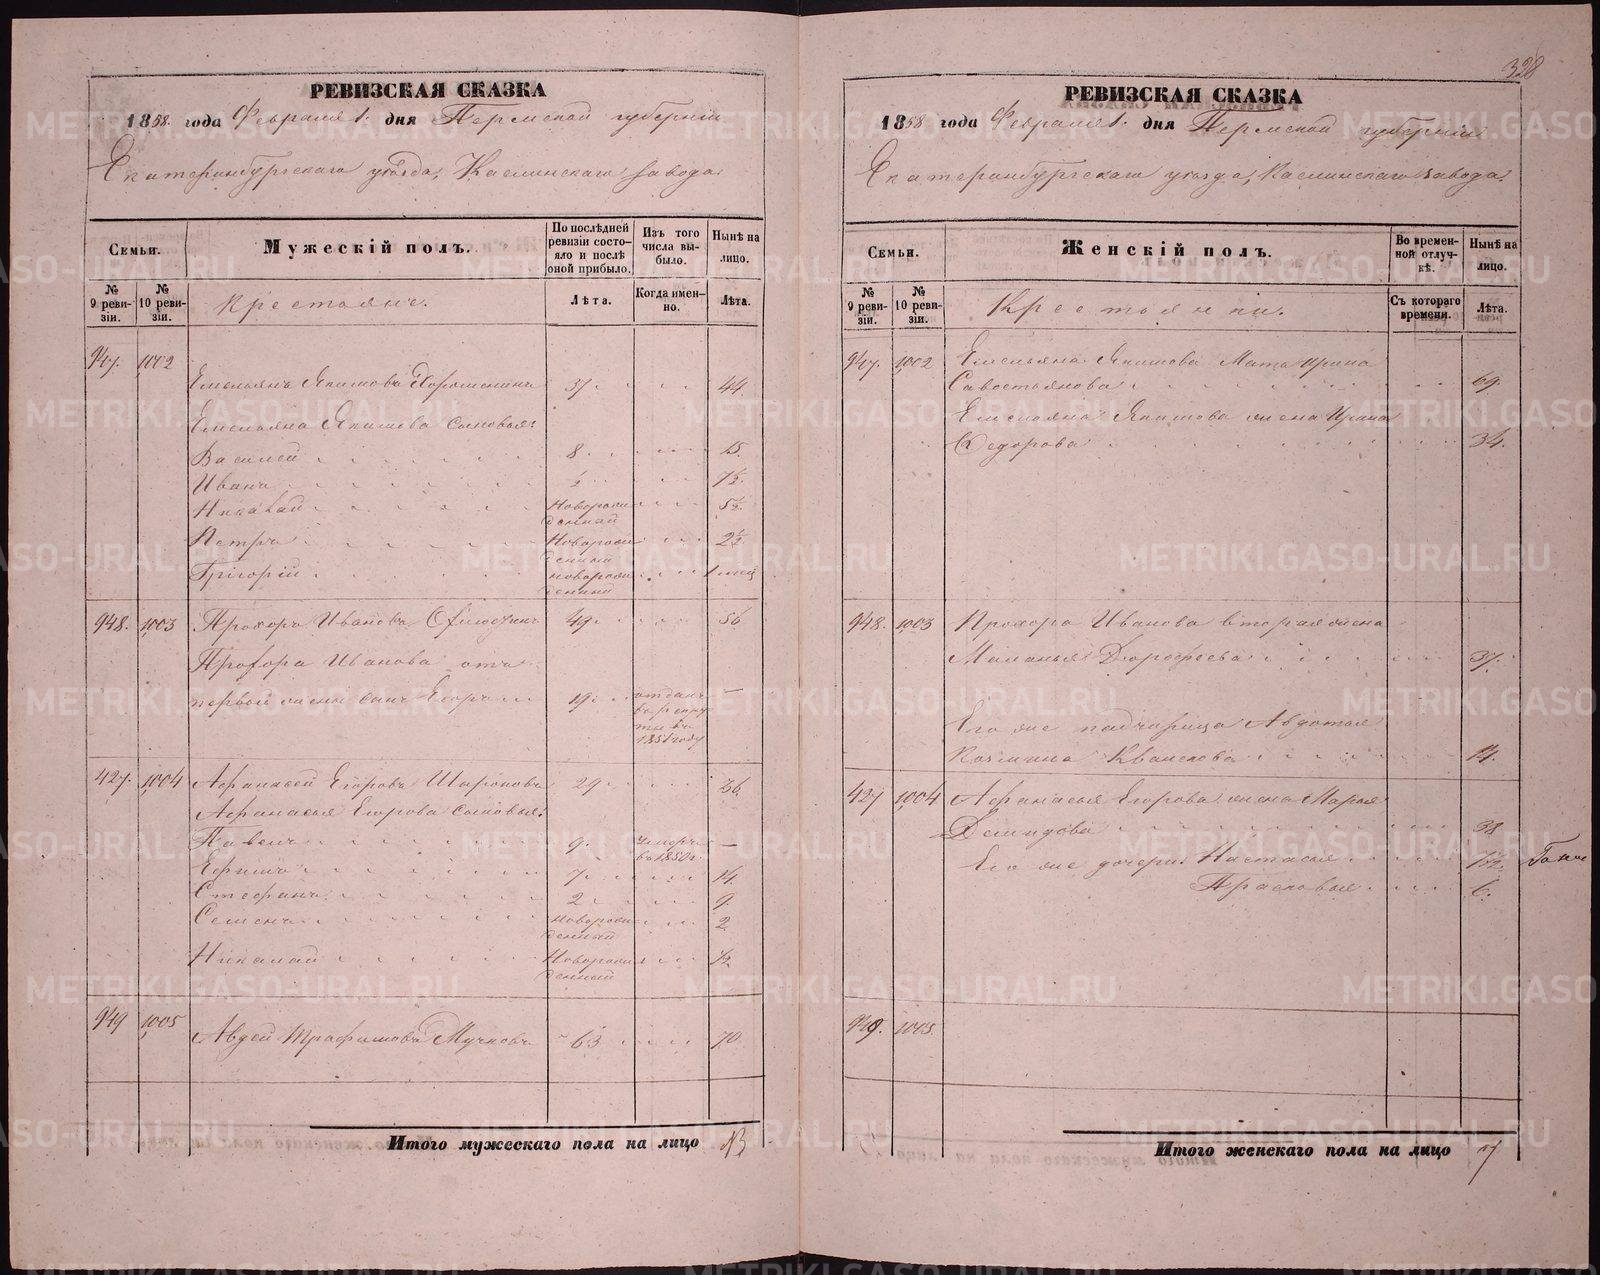 328
РЕВИЗСКАЯ СКАЗКА
1858. года Февраля 1. дня Пермской губерніи
Екатеринбургскаго уѣзда, Каслинскаго завода.
Семьи.
Мужескій полъ.
По послѣдней ревизіи состояло и послѣ оной прибыло.
Изъ того числа выбыло.
Нынѣ на лицо.
№ 9 ревизіи.
№ 10 ревизіи.
Крестьяне.
Лѣта.
Когда именно.
Лѣта.
947. 1002
Емельянъ Якимовъ 37 44
Емельяна Якимова сыновья:
Василей 8 15
Иванъ ½ 7½
Новорожденный 5½
Петръ Новорожденный 2½
Григорій новорожденный 1 мец
948. 1003 Прохоръ Ивановъ 49 56
Прохора Иванова отъ
первой жены сынъ Егоръ 19 отданъ въ рекруты въ 1851 году —
427. 1004 Афанасей Егоровъ 29 36
Афанасья Егорова сыновья:
Павелъ 9 умеръ въ 1850 г. —
Ефимъ 7 14
Стефанъ 2 9
Семенъ новорожденный 2
Николай Новорожденный ½
949 1005
Авдей Трафимовъ 63 70
Итого мужескаго пола на лицо 13
РЕВИЗСКАЯ СКАЗКА
1858 года Февраля 1. дня Пермской губерніи
Екатеринбургскаго уѣзда, Каслинскаго завода.
Семьи.
Женскій полъ.
Во временной отлучкѣ.
Нынѣ на лицо.
№ 9 ревизіи.
№ 10 ревизіи.
Крестьянки.
Съ котораго времени.
Лѣта.
947. 1002 Емельяна Якимова Мать Ирина
Савостьянова 69
Емельяна Якимова жена Ирина
Федорова 34
948. 1003 Прохора Иванова вторая жена
Маланья Дорофеева 37
Его же падчерица Авдотья
Козмина 14
427 1004 Афанасья Егорова жена Марья
Демидова 38
Его же дочери: Настасья
Прасковья 6
949. 1005.
Итого женскаго пола на лицо 7
METRIKI.GASO-URAL.RU